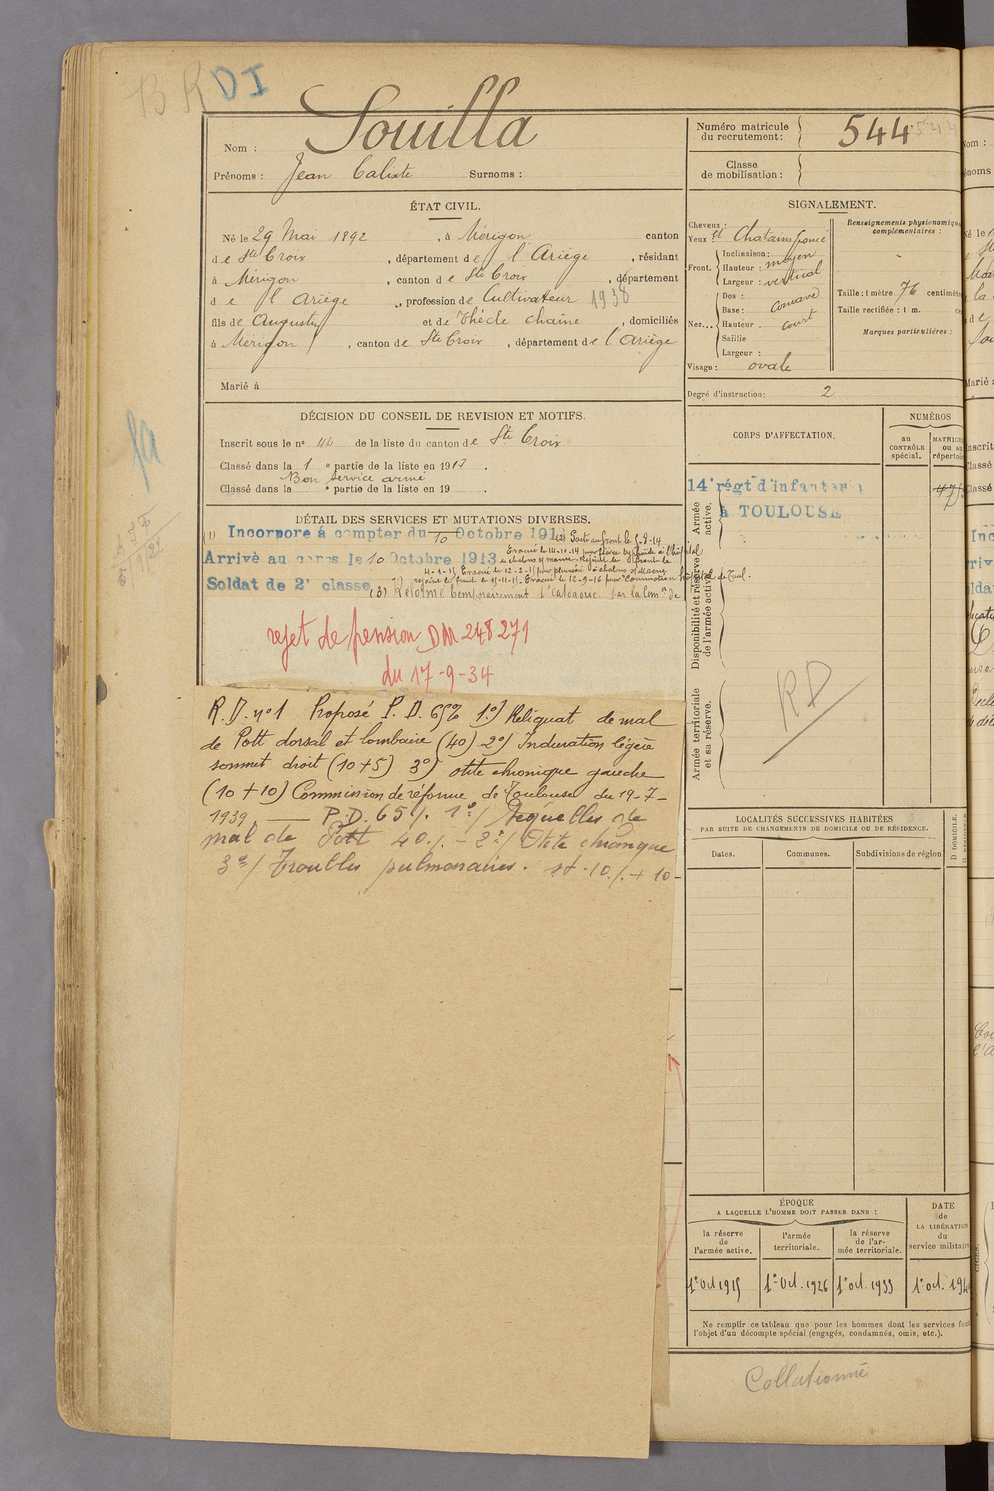 B R DI
Nom : Souilla
Prénoms : Jean Calixte Surnoms :
Numéro matricule du recrutement : 544
Classe de mobilisation :
ÉTAT CIVIL.
Né le 29 Mai 1892, à Mérigon canton
de Ste Croix, département de l'Ariège, résidant
à Mérigon, canton de Ste Croix, département
de l'Ariège, profession de Cultivateur 1938
fils de Augustin et de Thècle Chaîne, domiciliés
à Mérigon, canton de Ste Croix, département de l'Ariège
Marié à
SIGNALEMENT.
Cheveux :
Yeux et Chatains foncé
Front. Inclinaison :
Hauteur : moyen
Largeur : vertical
Nez... Dos : concave
Base :
Hauteur . court
Saillie
Largeur :
Visage : ovale
Renseignements physionomiq
complémentaires :
Taille : 1 mètre 76 centimètr
Taille rectifiée : 1 m. ce
Marques particulières :
Degré d'instruction : 2
DÉCISION DU CONSEIL DE REVISION ET MOTIFS.
Inscrit sous le no 44 de la liste du canton de Ste Croix
Classé dans la 1 e partie de la liste en 1913.
Bon service armé
Classé dans la e partie de la liste en 19 .
CORPS D'AFFECTATION.
NUMÉROS
au CONTRÔLE spécial.
MATRICU ou au répertoir
14e régt d'infanterie
à TOULOUSE
Armée active.
Disponibilité et réserve de l'armée active.
Armée territoriale et sa réserve.
RD
DÉTAIL DES SERVICES ET MUTATIONS DIVERSES.
(1) Incorporé à compter du 10 Octobre 191 (2) Parti au front le 5-8-14
Evacué le 14-10-14 pour fièvre typhoide à l'hôpital
Arrivé au corps le 10 Octobre 1913 de chalons s/ marne. Rejoint le
4-1-15 Evacué le 12-2-15 pour pleurésie à chalons s/
Soldat de 2e classe rejoint le front le 15-11-15. Evacué le 12-9-16 pour commotion hôpital de Tul.
(3) Réformé temporairement 1e catégorie par la Com on de
rejet de pension DM 248 271
du 17-9-34
R.D. no 1 Proposé P. D. 65% 1o) Reliquat de mal
de Pott dorsal et lombaire (40) 2o) Induration légère
sommet droit (10+5) 3o) otite chronique gauche
(10+10) Commission de réforme de Toulouse du 19-7-
1939. — P.D. 65 %. 1o/ Séquelles de
mal de Pott 40 %. - 2o/ Otite chronique
3o/ Troubles pulmonaires. st. 10 %. + 10 -
LOCALITÉS SUCCESSIVES HABITÉES
PAR SUITE DE CHANGEMENTS DE DOMICILE OU DE RÉSIDENCE.
Dates. Communes. Subdivisions de région
D DOMICILE.
ÉPOQUE
A LAQUELLE L'HOMME DOIT PASSER DANS :
la réserve de l'armée active.
l'armée territoriale.
la réserve de l'armée territoriale.
DATE de LA LIBÉRATION du service militair
1er Oct 1915 1er Oct. 1926 1er oct. 1933 1er oct. 194
Ne remplir ce tableau que pour les hommes dont les services font
l'objet d'un décompte spécial (engagés, condamnés, omis, etc.).
Collationné